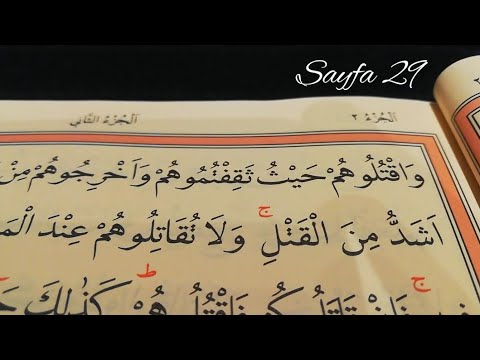 Sayfa 29
اَلْجُزْءُ ٢
اَلْجُزْءُ الثَّانِي
وَاقْتُلُوهُمْ حَيْثُ ثَقِفْتُمُوهُمْ وَاَخْرِجُوهُمْ مِنْ
اَشَدُّ مِنَ الْقَتْلِۚ وَلَا تُقَاتِلُوهُمْ عِنْدَ
كَذٰلِكَ